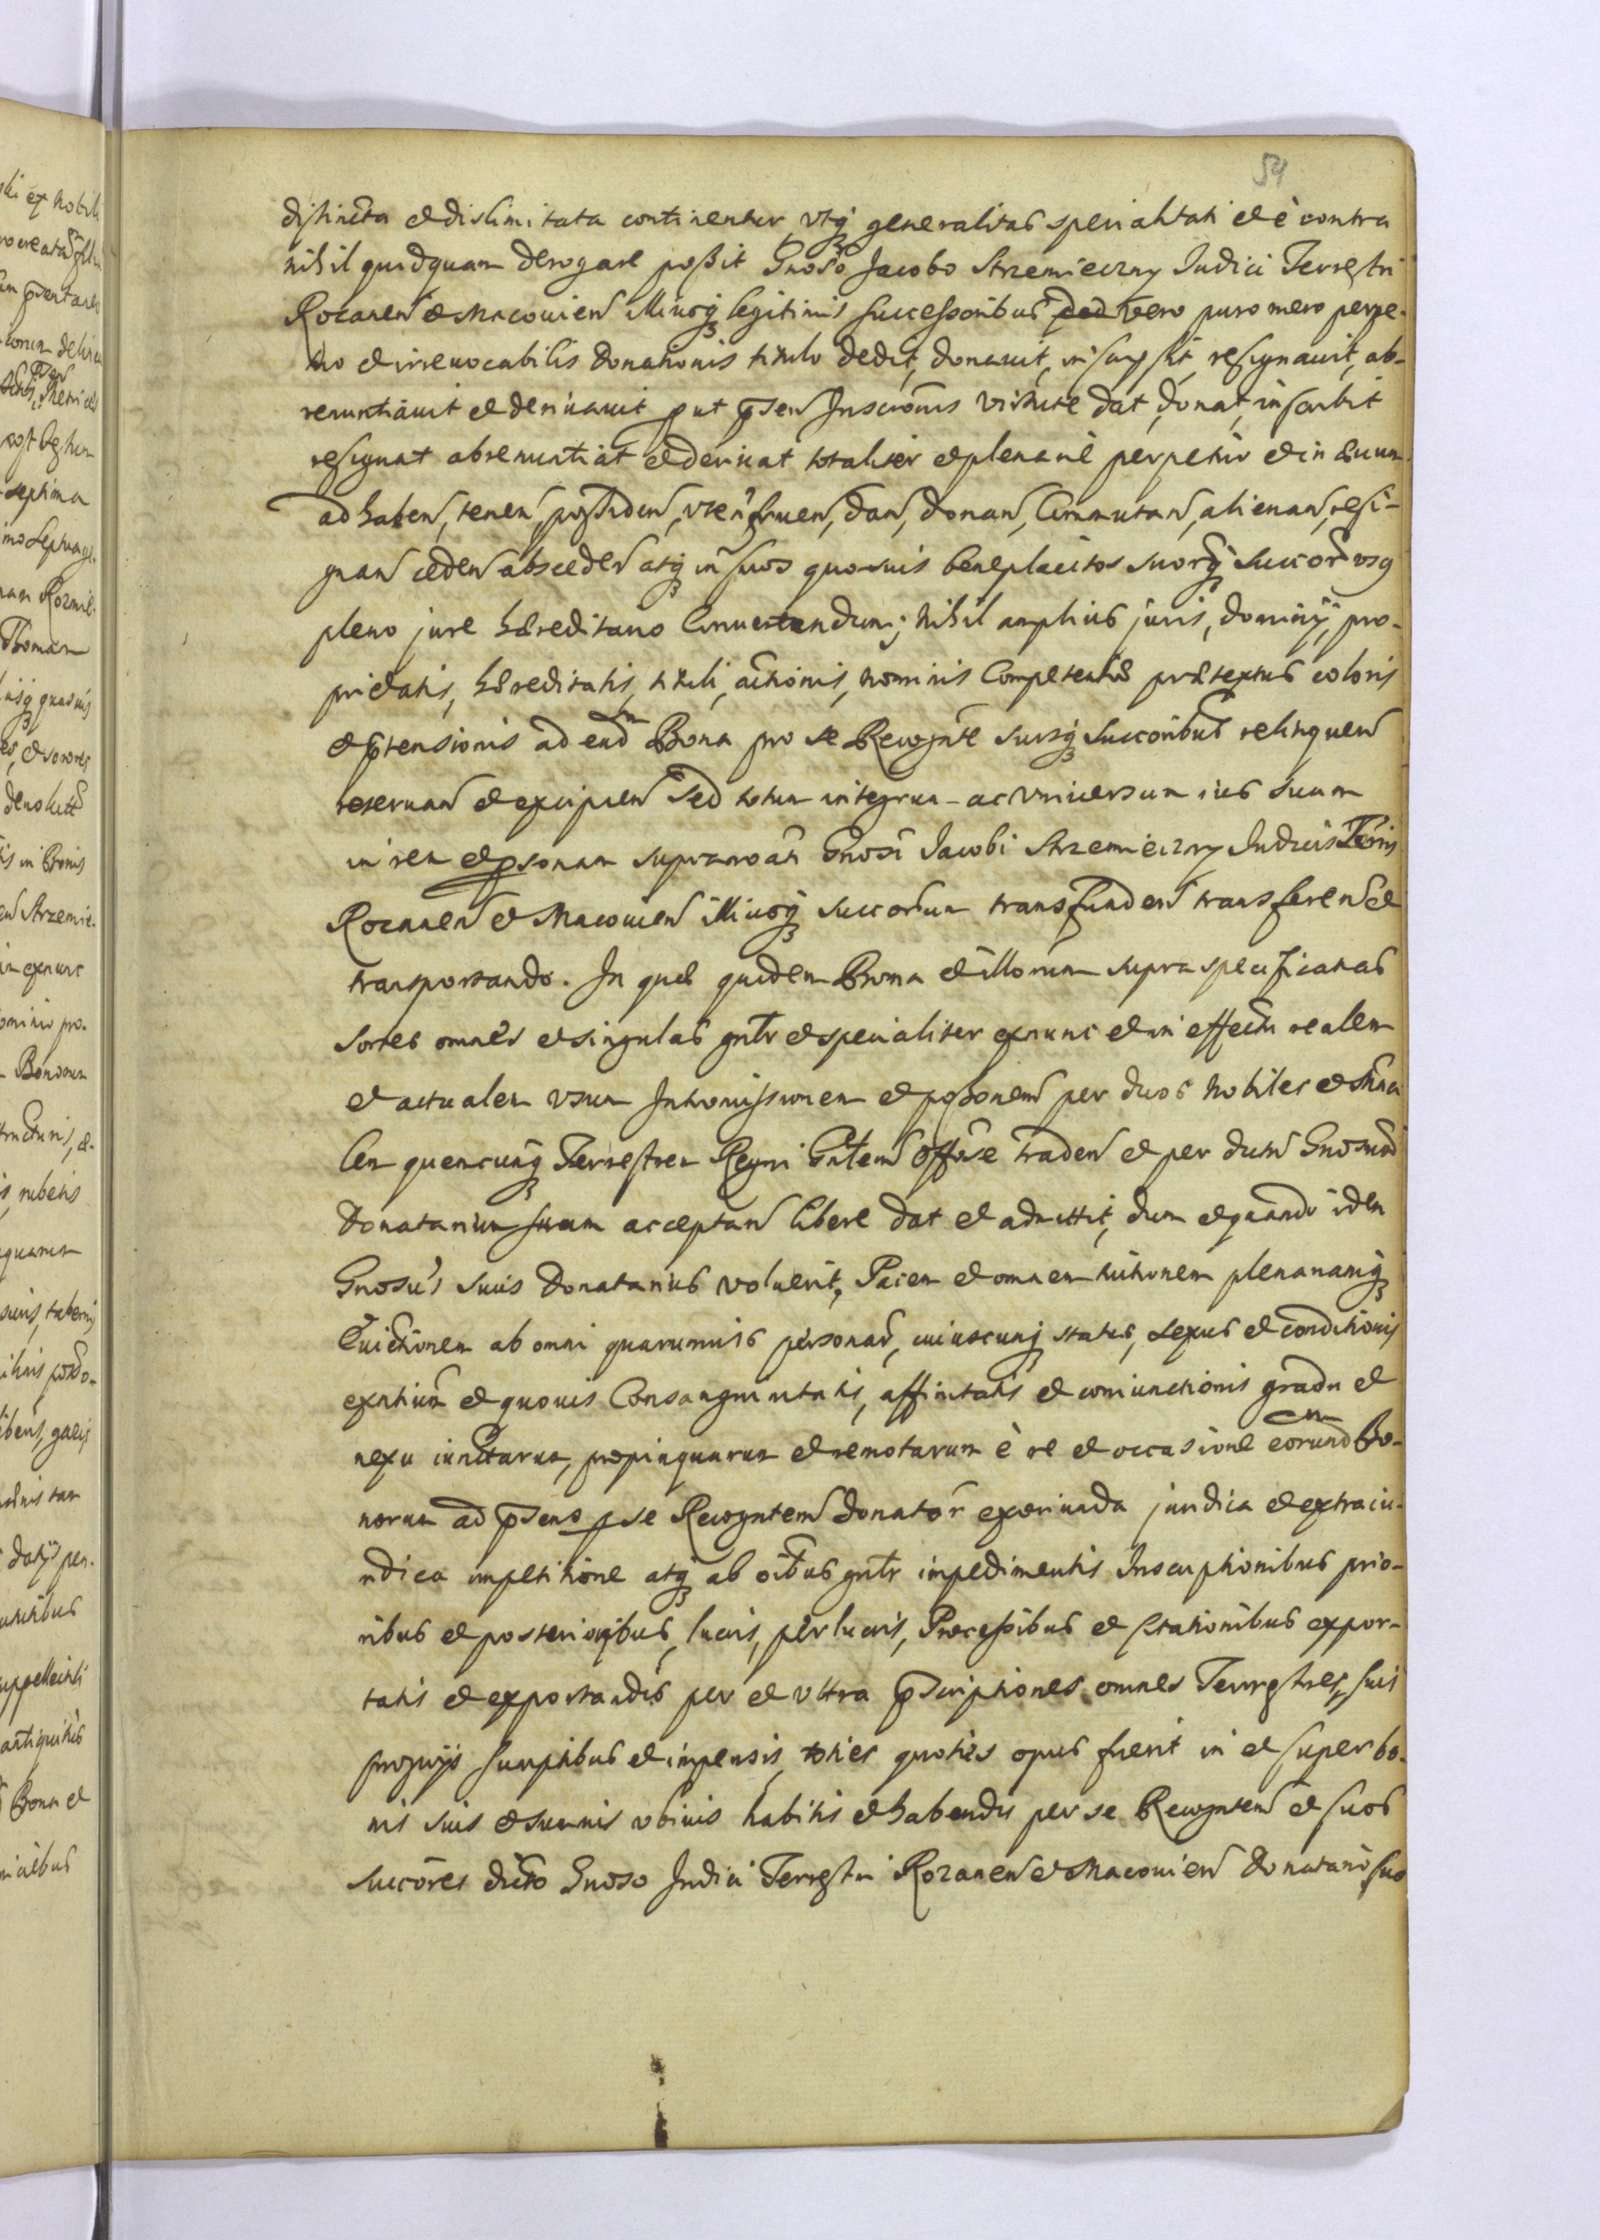 54
distincta et dislimitata continentur, vtq generalitas specialitati et è contra
nihil quidquam derogare possit Gnoso Jacobo Strzemieczny Judici Terrestri
Rozanen et Macouien Illiusq legitimis successoribus vero puro mero perpe-
tuo et irreuocabilis donationis titulo dedit, donauit, inscripsit, resignauit, ab-
renuntiauit et deriuauit put psen Inscronis virtute dat, donat, inscribit
resignat abrenuntiat et deriuat totaliter et plenariè perpetuò et in æuum
ad haben, tenen, possiden, vten, fruen, dan, donan, Commutan, alienan, resi-
gnan ceden absceden atq in suos quosuis beneplacitos suorq succor vsq
pleno jure hæreditario Conuertendum; nihil amplius juris, dominij, pro-
prietatis, hæreditatis, tituli, actionis, nominis Competentiæ prætextus coloris
et ptensionis ad eadm Bona pro se Recognte suisq succoribus relinquen
reseruan et excipien sed totum integrum ac vniuersum ius suum
in rem et psonam supranoati Gnosi Jacobi Strzemieczny Judicis Terris
Rozanen et Macouien Illiusq succorum transfunden transferen et
transportando. In quæ quidem Bona et illorum supra specificatas
sortes omnes et singulas gnlr et specialiter exnunc et in effectu realem
et actualem vsum Intromissionem et possonem per duos Nobiles et
lem quemcunq Terrestrem Regni Gnlem Offose traden et per dictum Gnosum
Donatarium suum acceptan libere dat et admittit, dum et quando idem
Gnosus suus Donatarius voluerit, Pacem et omnem tuitionem plenariamq
Euictionem ab omni quarumuis personar, cuiuscunq status, sexus et conditionis
extntium et quouis Consanguinitatis, affinitatis et coniunctionis gradu et
nexu iunctarum, propinquarum et remotarum è re et occasione eorundm Bo-
norum ad psens p se Recogntem donator exoriunda juridica et extraiu-
ridica impetitione atq ab oibus gnlr impedimentis Inscriptionibus prio-
ribus et posterioribus, lucris, perlucris, Processibus et Citationibus expor-
tatis et exportandis per et vltra pscriptiones omnes Terrestres, suis
proprijs sumptibus et impensis, toties quoties opus fuerit in et super bo-
nis suis et summis vbiuis habitis et habendis per se Recogntem et suos
succores dicto Gnoso Judici Terrestri Rozanen et Macouien Donatario suo